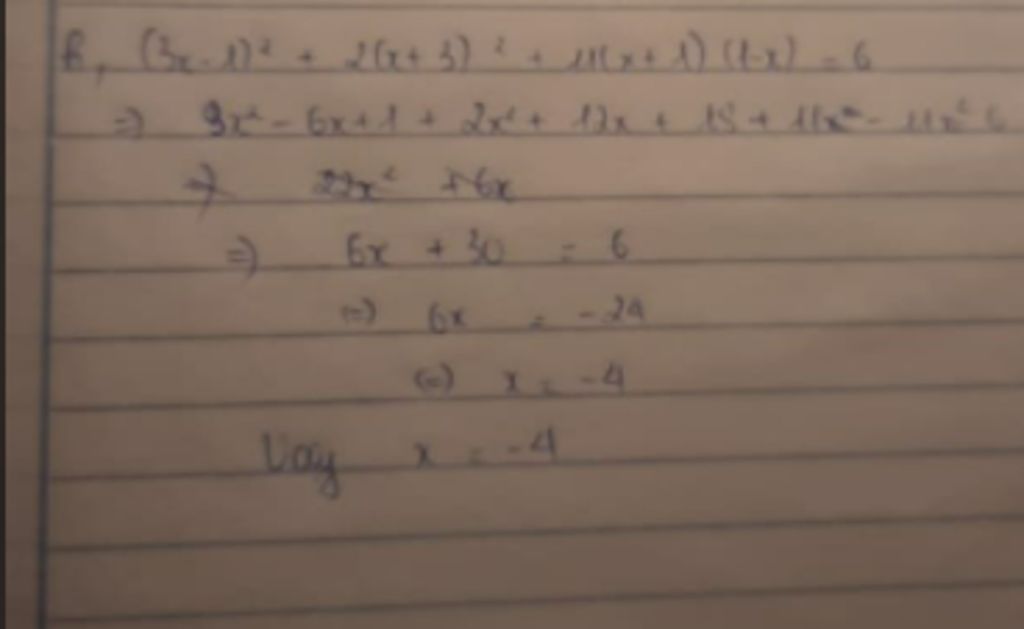 b, (3x-1)² + 2(x+3)² + 11(x+1)(1-x) = 6
=> 9x² - 6x+1 + 2x² + 12x + 18 + 11 - 11x² 6
=> 22x² +6x
=> 6x + 30 = 6
(=) 6x = -24
(=) x = -4
Vậy x = -4